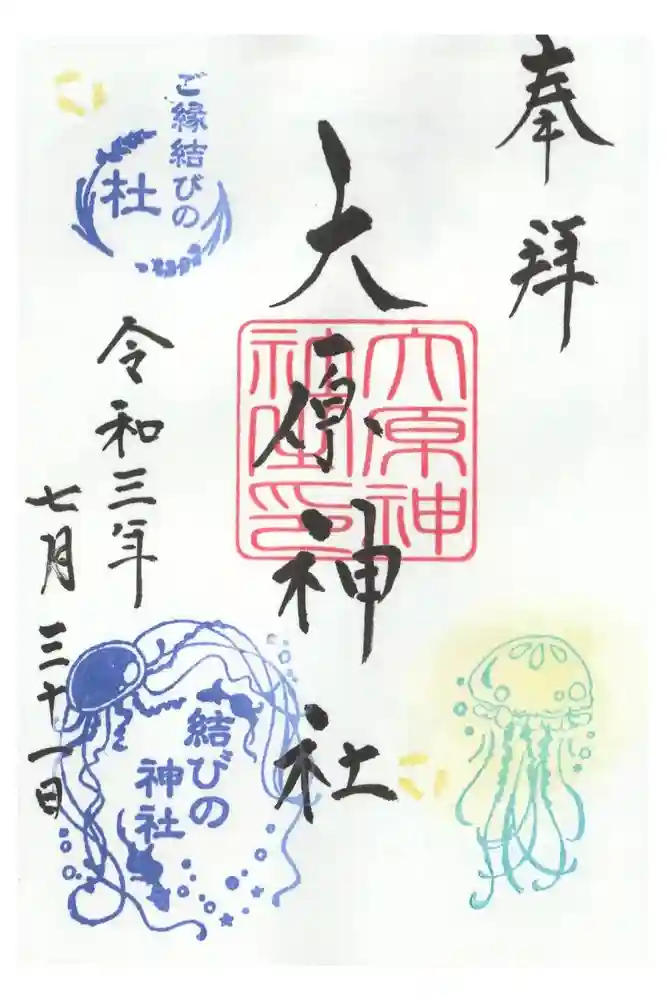 奉拝
大原神社
大原神
社印
ご縁結びの
杜
令和三年
七月三十一日
結びの
神社